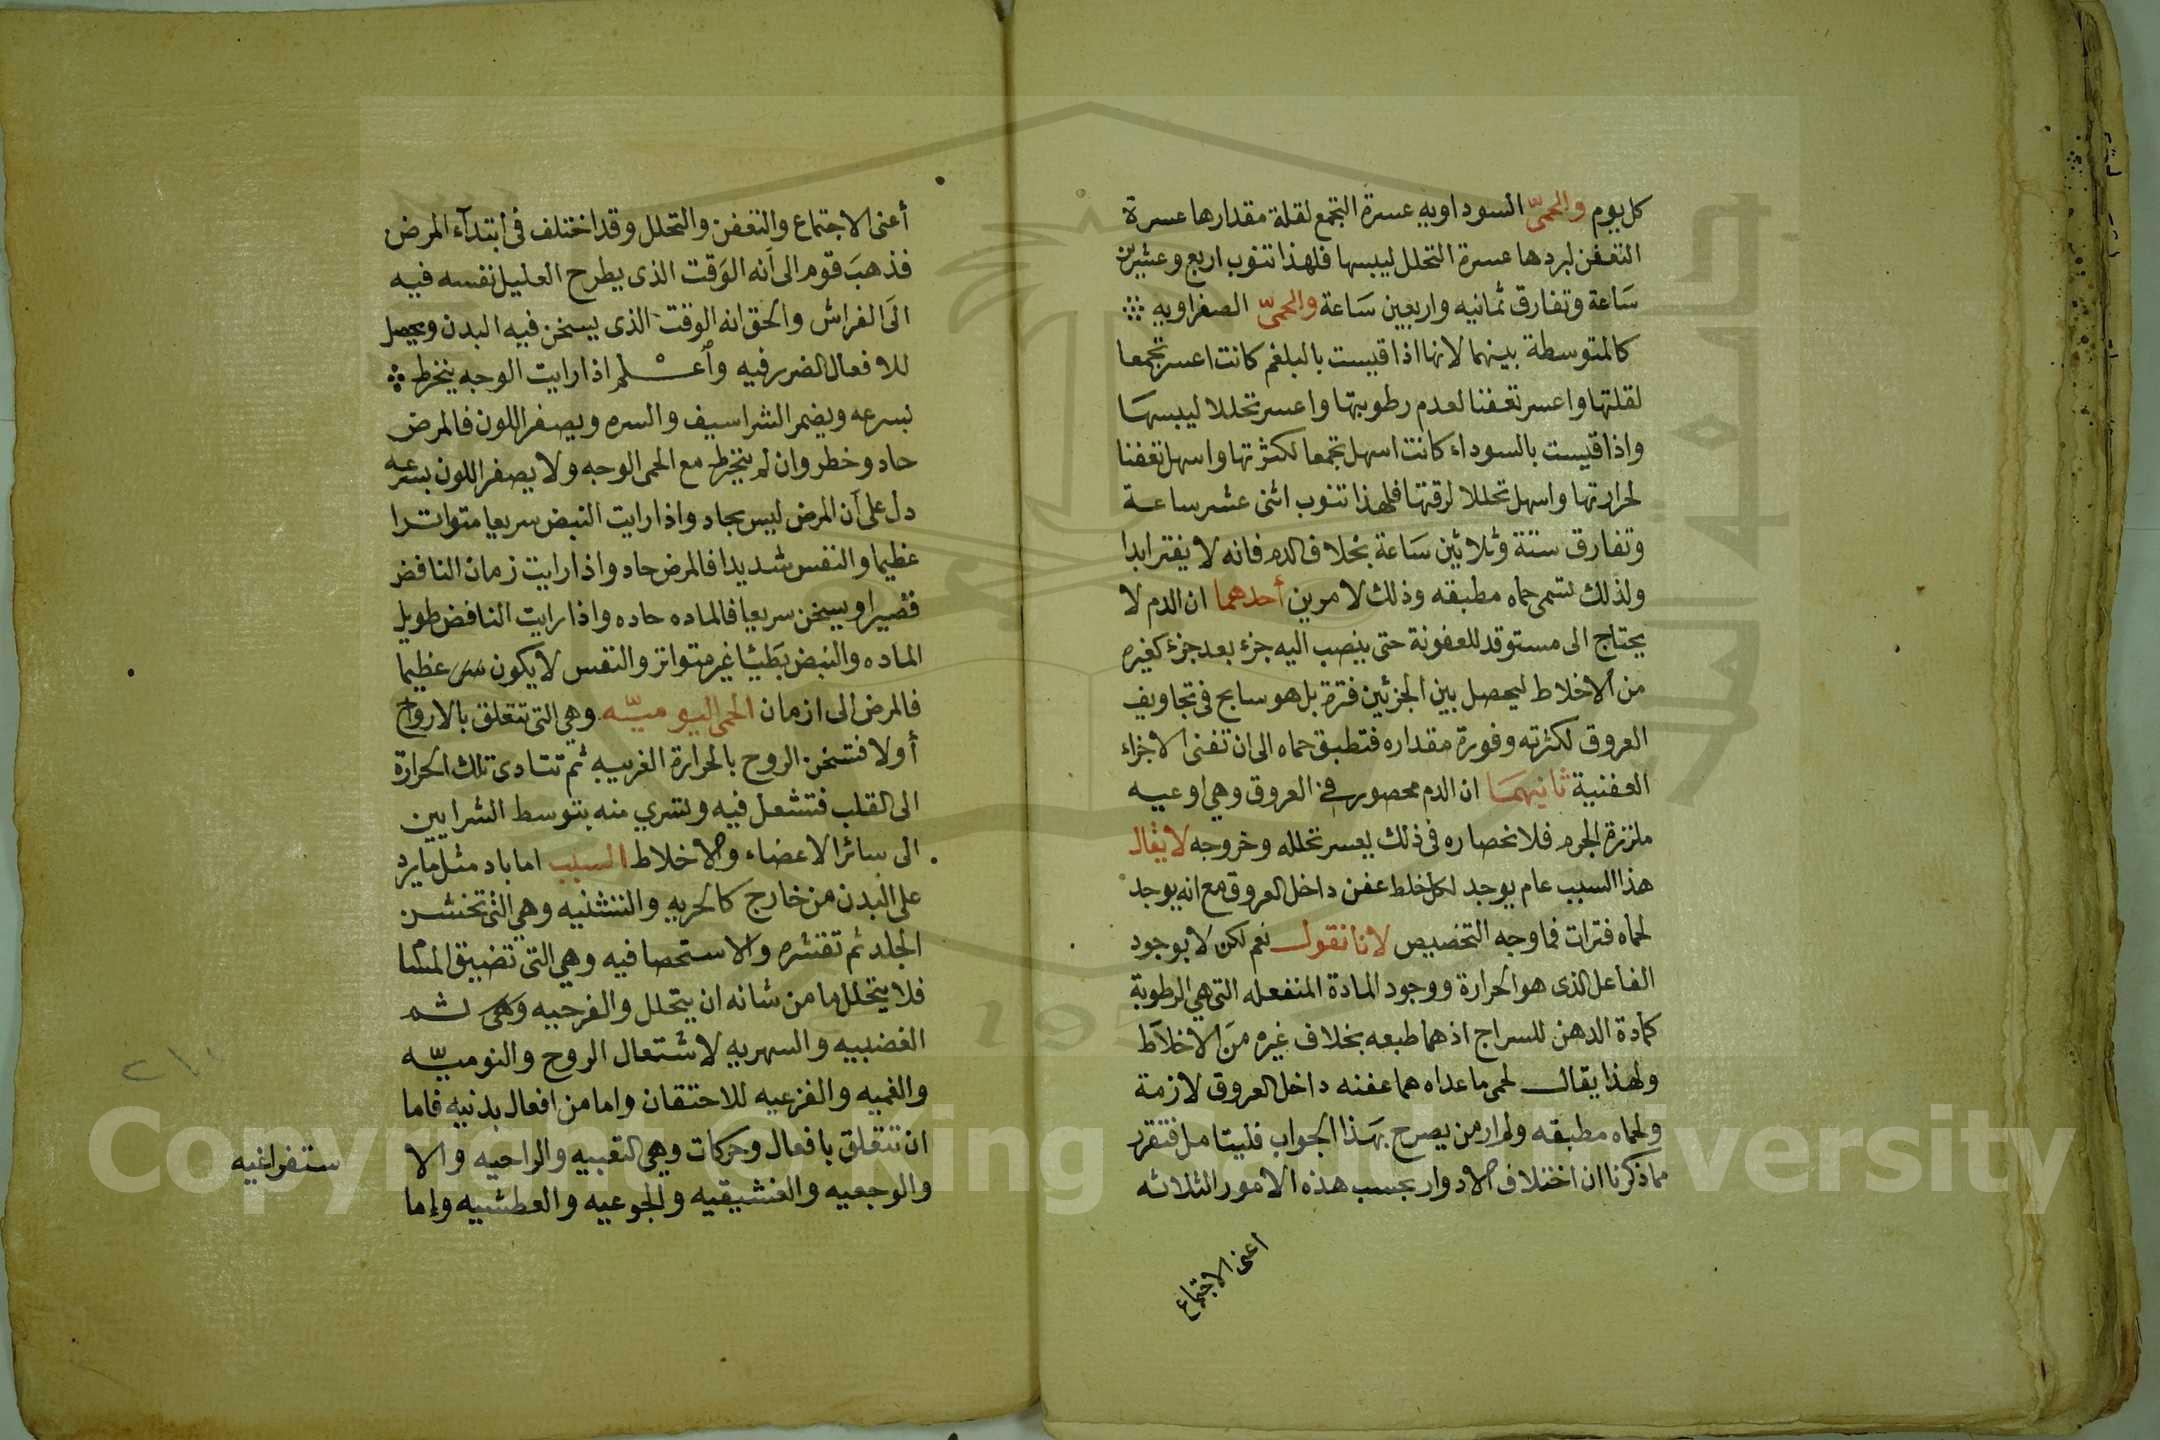 كل يوم والحمىّ السوداويه عسرة التجمع لقلة مقدارها عسرة
التعفن لبردها عسرة التحلل ليبسها فلهذا تنوب اربع وعشرين
سَاعة وتفارق ثمانيه واربعين سَاعة والحمىّ الصفراويه
كالمتوسطة بينهما لانها اذا قيست بالبلغم كانت اعسر تجمعا
لقلتها واعسر تعفنا لعدم رطوبتها واعسر تحللا ليبسهَا
واذا قيست بالسوداء كانت اسهل تجمعا لكثرتها واسهل تعفنا
لحرارتها واسهل تحللا لرقتها فلهذا تنوب اثنى عشر ساعة
وتفارق ستة وثلاثين سَاعة بخلاف الدم فانه لا يفتر ابدا
ولذلك تسمى حماه مطبقه وذلك لامرين أحدهما ان الدم لا
يحتاج الى مستوقد للعفونة حتى ينصب اليه جزء بعد جزء كغيره
من الاخلاط ليحصل بين الجزئين فترة بل هو سابح فى تجاويف
العروق لكثرته وفورة مقداره فتطبق حماه الى ان تفنى الاجزاء
العفنية ثانيهمَا ان الدم محصور في العروق وهي اوعيه
ملززة الجرم فلانحصاره فى ذلك يعسر تحلله وخروجه لا يقال
هذا السبب عام يوجد لكل خلط عفن داخل العروق مع انه يوجد
لحماه فترات فما وجه التخصيص لانا نقول نعم لكن لا بوجود
الفاعل الذى هو الحرارة ووجود المادة المنفعله التى هي الرطوبة
كمادة الدهن للسراج اذ هما طبعه بخلاف غيره من الاخلاط
ولهذا يقال لحمى ماعداه مما عفنه داخل العروق لازمة
ولحماه مطبقه ولم ار من يصرح بهَذا الجواب فليتامل فتقرر
مما ذكرنا ان اختلاف الادوار بحسب هذه الامور الثلاثه
اعنى الاجتماع
أعنى الاجتماع والتعفن والتحلل وقد اختلف فى ابتدآء المرض
فذهبَ قوم الى أنه الوَقت الذى يطرح العليل نفسه فيه
الى الفراش والحق انه الوقت الذى يسخن فيه البدن ويحصل
للافعال الضرر فيه وأعلم اذا رايت الوجه ينخرط
بسرعه ويضمر الشراسيف والسره ويصفر اللون فالمرض
حاد وخطر وان لم ينخرط مع الحمى الوجه ولا يصفر اللون بسرعه
دل على أن المرض ليس بحاد واذا رايت النبض سريعا متواترا
عظيما والنفس شديدا فالمرض حاد واذا رايت زمان النافض
قصيرا ويسخن سريعا فالماده حاده واذا رايت النافض طويل
الماده والنبض بَطيئا غير متواتر والنفس لا يكون عظيما
فالمرض الى ازمان الحمى اليوميّه وهي التى تتعلق بالارواح
أولا فتسخن الروح بالحرارة الغريبه ثم تتادى تلك الحرارة
الى القلب فتشعل فيه وتسري منه بتوسط الشرايين
الى سائر الاعضاء والاخلاط السبب اما باد مثل ما يرد
على البدن من خارج كالحريه والتشنيه وهي التى تخشن
الجلد ثم تقشره والاستحصافيه وهي التى تضيق المسام
فلا يتحلل ما من شانه ان يتحلل والفرحيه وهى ثم
الغضبيه والسهريه لاشتعال الروح والنوميّه
والغميه والفزعيه للاحتقان واما من افعال بدنيه فاما
ان تتعلق بافعال وحركات وهي التعبيه والراحيه والا
ستفراغيه
والوجعيه والغشيقيه والجوعيه والعطشيه وإما
Copyright © King Saud University